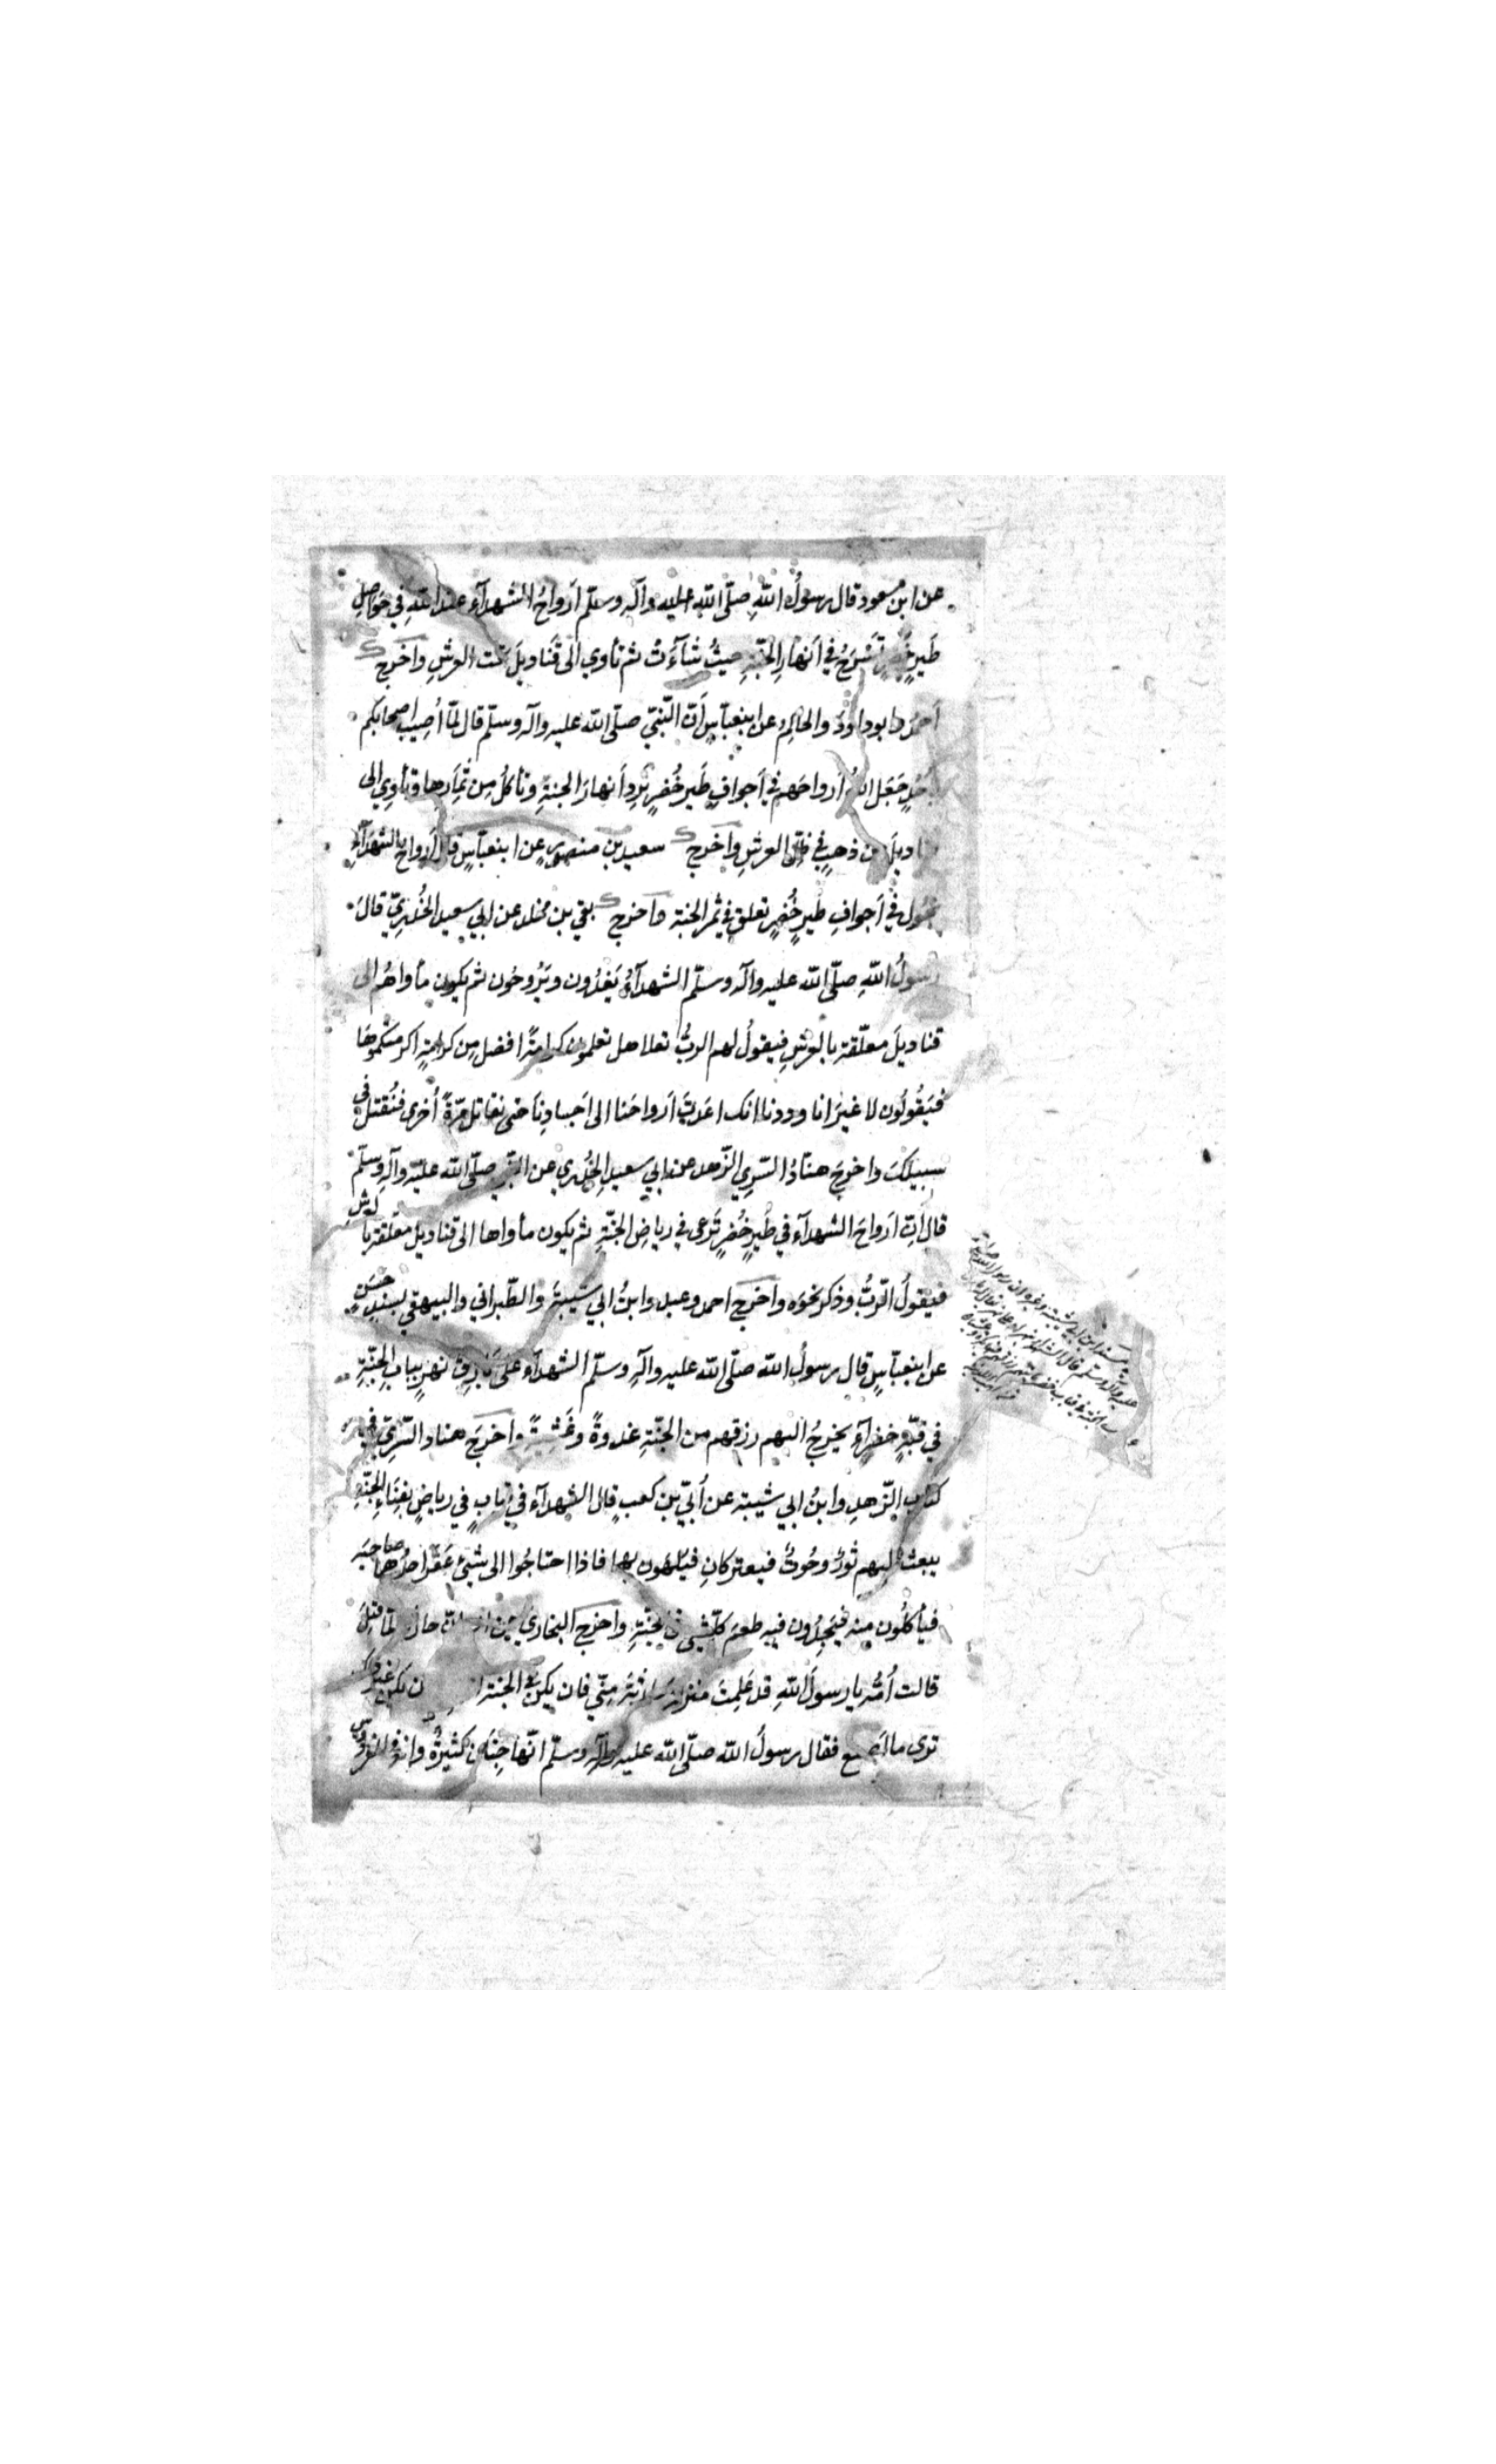 عن ابن مسعود قال رسولُ اللهِ صلّى الله عليه وآله وسلّم أرواحُ الشهدآءِ عند اللهِ في حَوَاصِلِ
طَيرٍ خُضرٍ تَسْرَحُ في أنهارِ الجنّةِ حيثُ شآءَت ثم تأوي الى قَناديلَ تحت العرشِ واَخرج
اَحمدُ وابو داوودَ والحاكِمُ عن ابنعبّاسٍ أنّ النّبيّ صلّى الله عليه وآله وسلّم قال لمّا أُصِيبَ اصحابكم
بأُحُدٍ جَعَلَ اللهُ أرواحَهم في أجوافِ طَيرٍ خُضرٍ تَرِد أنهارَ الجنةِ وتأكلُ مِن ثِمَارِها وتأوِي الى
قناديلَ من ذهبٍ في ظلّ العرشِ واَخرج سعيد بن منصورٍ عن ابنعبّاسٍ قال أرواحُ الشهدَآءِ
تجُول في اَجوافِ طَيرٍ خُضرٍ تعلق في ثمر الجنة واَخرج بقي بن مخلد عن ابي سعيد الخُدريّ قالَ
رسولُ اللهِ صلّى الله عليه وآله وسلّم الشهدآءُ يَغدُون ويَرُوحُون ثم يكون مأواهُم الى
قناديلَ معلّقة بالعرشِ فيقولُ لهم الربُّ تعلا هل تعلمون كرامةً افضل مِن كرامةٍ اكرمتكموها
فيَقُولُون لا غيرَ انا وددنا انك اعَدتَّ اَرواحَنا الى اَجسادِناَ حتى نقاتل مرّةً أُخرى فنُقتل في
سبيلكَ واخرجَ هنّادُ السّرِي الزّهد عن ابي سعيدِ الخُدري عن النّبي صلّى الله عليه وآلهِ وسلّم
قال أنّ اَرواحَ الشهدآء في طَيرٍ خُضرٍ تَرعى في رياضِ الجنّةِ ثم يكون مأواها الى قناديل معلّقة بالعرشِ
فيقولُ الرّبُّ وذكر نحوَه واَخرج احمد وعبد وابنُ ابي شَيبةَ والطّبراني والبيهقي بسندٍ حَسَنٍ
عن ابنعبّاسٍ قال رسولُ الله صلّى الله عليه وآلهِ وسلّم الشهدآء على بَارِق نهرٍ بِبابِ الجنّةِ
في قبّةٍ خضرآءَ يخرجُ اليهم رزقهم من الجنّةِ غدوةً وعَشِيّةً واَخرجَ هناد السّريّ في
كتاب الزّهدِ وابنُ ابي شيبة عن أُبَيّ بن كعبٍ قال الشهدآء في قبابٍ في رياضٍ بفِنَاءِ الجنّةِ
يبعث اليهم ثَورٌ وحُوتٌ فيعتركانِ فيلهون بهما فاذا احتاجُوا الى شيئ عَقَرَ احدُهما صاحِبَه
فيأكلُون مِنه فيَجِدُون فيه طعمَ كلّ شيئ في الجنّةِ واَخرج البخاري عن انس انّ حارثة لمّا قُتِلَ
قالت اُمُّه يا رسولَ اللهِ قد عَلِمتَ منزلة حارثةَ مِنّي فان يكن في الجنة
ترى ما اَصنع فقال رسولُ الله صلّى الله عليه وآله وسلّم انّها جِنَان كثيرةٌ وانه في الفردوس